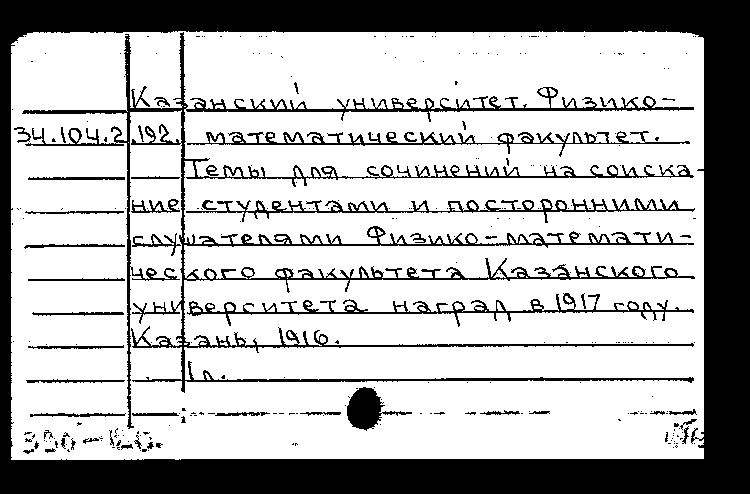 Казанский университет. Физико-
34.104.2.192. математический факультет.
Темы для сочинений на соиска-
ние студентами и посторонними
слушателями Физико-математи-
ческого факультета Казанского
университета наград в 1917 году.
Казань, 1916.
1 л.